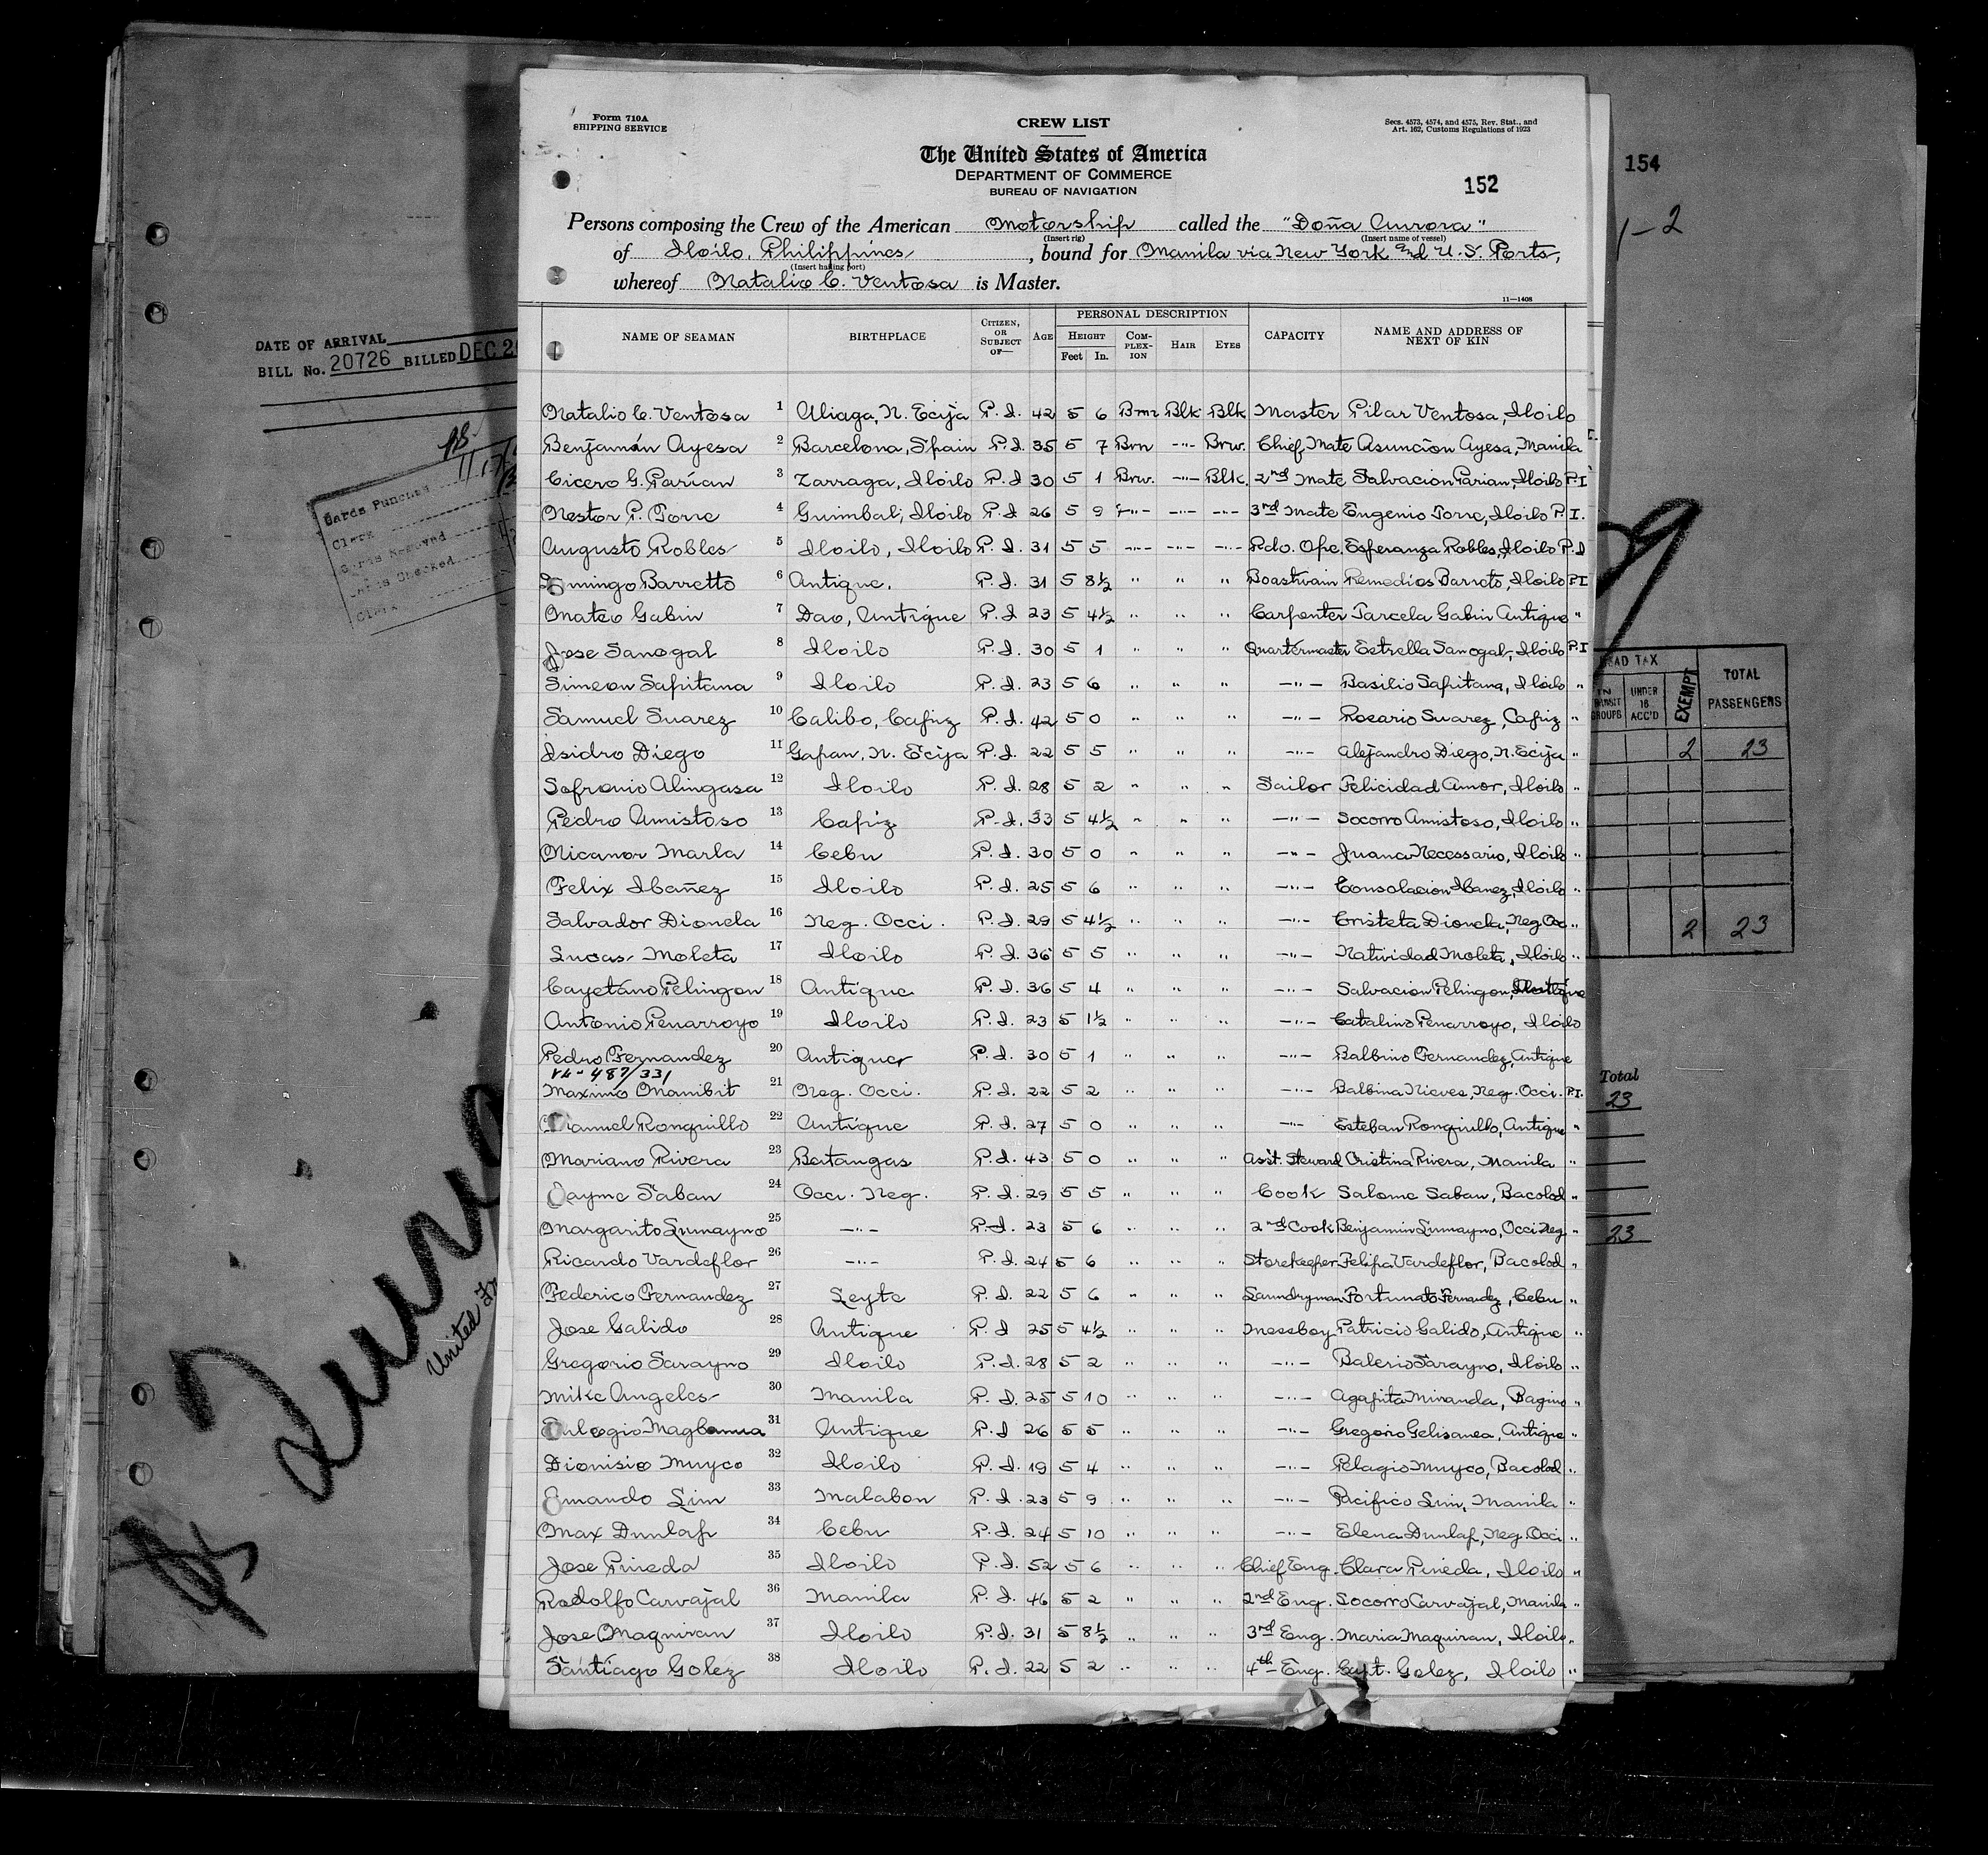 Form 710A
SHIPPING SERVICE
CREW LIST
Secs. 4573, 4574, and 4575, Rev. Stat., and
Art. 162, Customs Regulations of 1923
The United States of America
DEPARTMENT OF COMMERCE
BUREAU OF NAVIGATION
152
154
1-2
Persons composing the Crew of the American Motorship called the "Doña Aurora"
(Insert rig) (Insert name of vessel)
of Iloilo, Philippines, bound for Manila via New York and U.S. Ports,
(Insert hailing port)
whereof Natalio C. Ventosa is Master.
11—1408
NAME OF SEAMAN BIRTHPLACE CITIZEN, OR SUBJECT OF— AGE PERSONAL DESCRIPTION HEIGHT Feet In. COM-PLEX-ION HAIR EYES CAPACITY NAME AND ADDRESS OF NEXT OF KIN
Natalio C. Ventosa 1 Aliaga, N. Ecija P.I. 42 5 6 Brn Blk Blk Master Pilar Ventosa, Iloilo
Benjamin Ayesa 2 Barcelona, Spain P.I. 35 5 7 Brn -"- Brw. Chief Mate Asuncion Ayesa, Manila
Cicero G. Parian 3 Zarraga, Iloilo P.I 30 5 1 Brw. -"- Blk. 2nd Mate Salvacion Parian, Iloilo P.I
Nestor P. Torre 4 Guimbal, Iloilo P.I 26 5 9 -"- -"- -"- 3rd Mate Eugenio Torre, Iloilo P.I.
Augusto Robles 5 Iloilo, Iloilo P.I. 31 5 5 -"- -"- -"- Rdo. Ope. Esperanza Robles, Iloilo P.I
Domingo Barretto 6 Antique. P.I. 31 5 8½ " " " Boastwain Remedios Barreto, Iloilo P.I
Mateo Gabin 7 Dao, Antique P.I 23 5 4½ " " " Carpenter Tarcela Gabin Antique "
Jose Sanogal 8 Iloilo P.I. 30 5 1 " " " Quartermaster Estrella Sanogal, Iloilo P.I
Simeon Sapitana 9 Iloilo P.I. 23 5 6 " " " -"- Basilio Sapitana, Iloilo "
Samuel Suarez 10 Calibo, Capiz P.I. 42 5 0 " " " -"- Rosario Suarez, Capiz "
Isidro Diego 11 Gapan, N. Ecija P.I. 22 5 5 " " " -"- Alejandro Diego, N. Ecija "
Sofronio Alingasa 12 Iloilo P.I. 28 5 2 " " " Sailor Felicidad Amor, Iloilo "
Pedro Amistoso 13 Capiz P.I. 33 5 4½ " " " -"- Socorro Amistoso, Iloilo "
Nicanor Marla 14 Cebu P.I. 30 5 0 " " " -"- Juana Necessario, Iloilo "
Felix Ibañez 15 Iloilo P.I. 25 5 6 " " " -"- Consolacion Ibanez, Iloilo "
Salvador Dionela 16 Neg. Occi. P.I. 29 5 4½ " " " -"- Cristeta Dionela, Neg Occ "
Lucas Moleta 17 Iloilo P.I. 36 5 5 " " " -"- Natividad Moleta, Iloilo "
Cayetano Pelingon 18 Antique P.I. 36 5 4 " " " -"- Salvacion Pelingon, Antique
Antonio Penarroyo 19 Iloilo P.I. 23 5 1½ " " " -"- Catalino Penarroyo, Iloilo
Pedro Fernandez 20 Antique P.I. 30 5 1 " " " -"- Balbino Fernandez, Antique
487/331
Maximo Manibit 21 Neg. Occi. P.I. 22 5 2 " " " -"- Balbina Nieves, Neg. Occi. P.I.
Manuel Ronquillo 22 Antique P.I. 27 5 0 " " " -"- Esteban Ronquillo, Antique "
Mariano Rivera 23 Batangas P.I. 43 5 0 " " " Asst. Steward Cristina Rivera, Manila "
Jayme Saban 24 Occi. Neg. P.I. 29 5 5 " " " Cook Salome Saban, Bacolod "
Margarito Lumayno 25 -"- P.I. 23 5 6 " " " 2nd Cook Benjamin Lumayno, Occi Neg "
Ricardo Vardeflor 26 -"- P.I. 24 5 6 " " " Storekeeper Felipa Vardeflor, Bacolod "
Federico Fernandez 27 Leyte P.I. 22 5 6 " " " Laundryman Fortunato Fernandez, Cebu "
Jose Galido 28 Antique P.I 25 5 4½ " " " Messboy Patricio Galido, Antique "
Gregorio Sarayno 29 Iloilo P.I. 28 5 2 " " " -"- Balerio Sarayno, Iloilo "
Mike Angeles 30 Manila P.I. 25 5 10 " " " -"- Agapita Miranda, Baguio "
Eulogio Magbanua 31 Antique P.I 26 5 5 " " " -"- Gregorio Gelisanea, Antique "
Dionisio Muyco 32 Iloilo P.I. 19 5 4 " " " -"- Pelagio Muyco, Bacolod "
Amando Lim 33 Malabon P.I. 23 5 9 " " " -"- Pacifico Lim, Manila "
Max Dunlap 34 Cebu P.I. 24 5 10 " " " -"- Elena Dunlap, Neg. Occi "
Jose Pineda 35 Iloilo P.I. 52 5 6 " " " Chief Eng. Clara Pineda, Iloilo "
Rodolfo Carvajal 36 Manila P.I. 46 5 2 " " " 2nd Eng. Socorro Carvajal, Manila "
Jose Maquiran 37 Iloilo P.I. 31 5 8½ " " " 3rd Eng. Maria Maquiran, Iloilo "
Santiago Golez 38 Iloilo P.I. 22 5 2 " " " 4th Eng. Capt. Golez, Iloilo "
DATE OF ARRIVAL
BILL No. 20726 BILLED DEC 2
Cards Punched
Clerk
Cards Removed
Checked
Clerk
United
HEAD TAX
IN TRANSIT GROUPS UNDER 16 ACC'D EXEMPT TOTAL PASSENGERS
2 23
2 23
Total
23
23